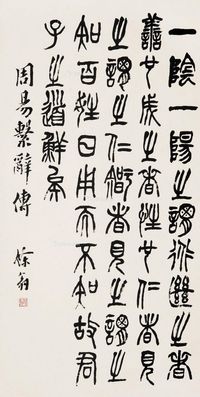 一陰一陽之謂道繼之者
善也成之者性也仁者見
之謂之仁智者見之謂之
知百姓日用而不知故君
子之道鮮矣
周易繫辭傳
翁